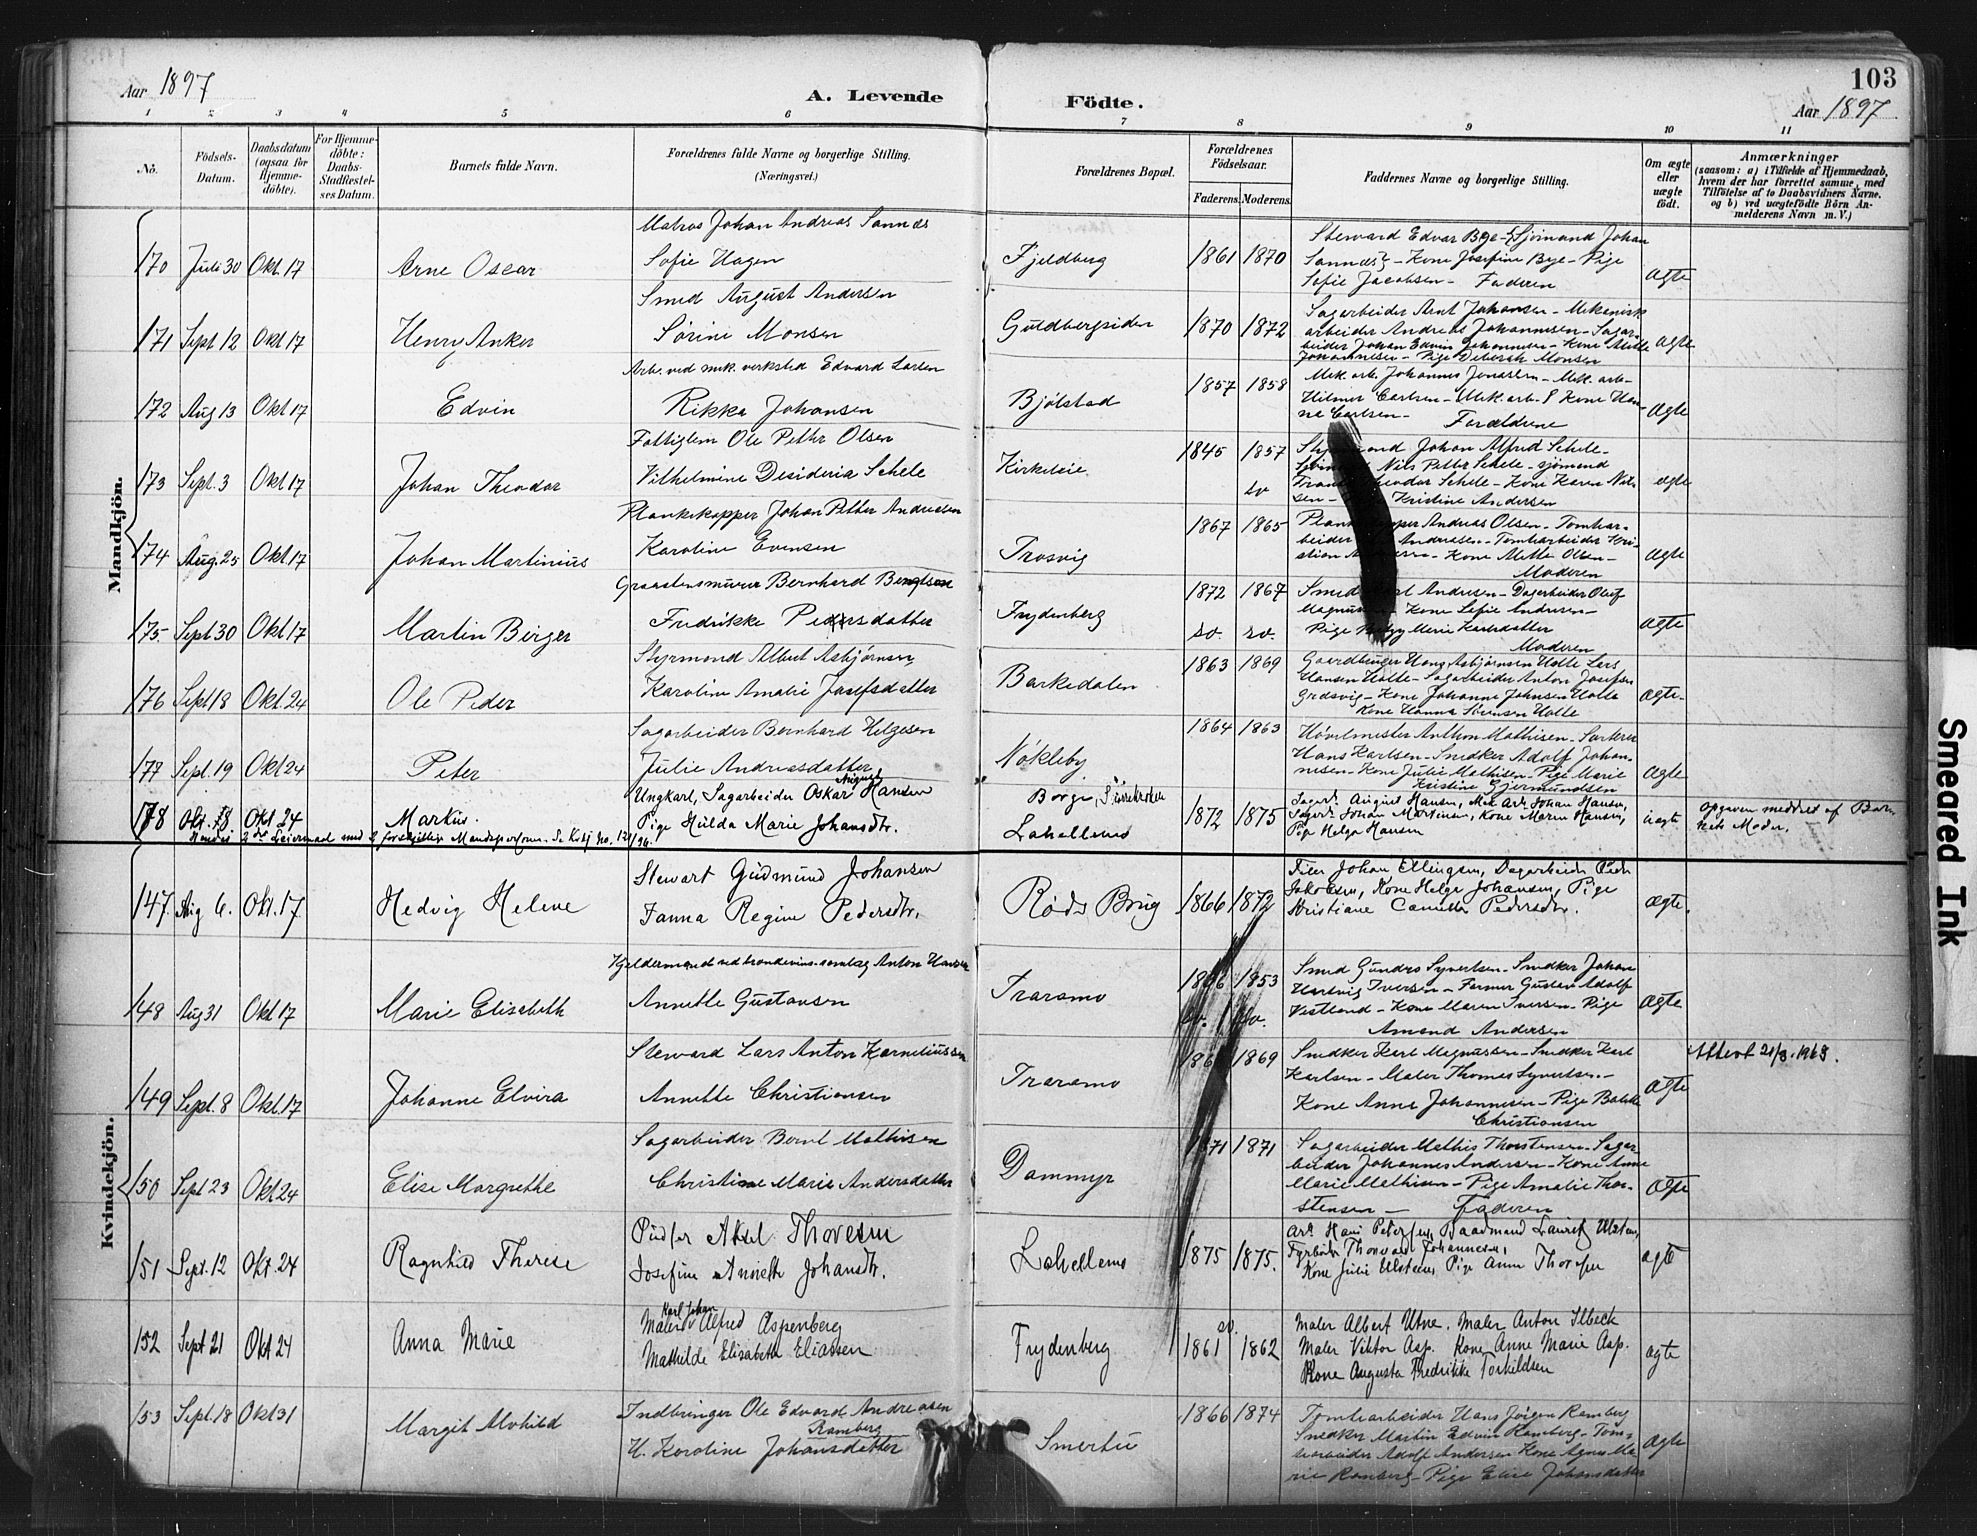 Aar 1897
A. Levende
Födte.
103
Aar 1897
1 2 3 4 5 6 7 8 9 10 11
No.
Födsels-Datum.
Daabsdatum (ogsaa for Hjemme-döbte).
For Hjemme-döbte: Daabs-Stadfæstel-ses Datum.
Barnets fulde Navn.
Forældrenes fulde Navne og borgerlige Stilling. (Næringsvei.)
Forældrenes Bopæl.
Forældrenes Födselsaar.
Faderens. Moderens.
Faddernes Navne og borgerlige Stilling.
Om ægte eller uægte födt.
Anmærkninger
(saasom: a) i Tilfælde af Hjemmedaab, hvem der har forrettet samme, med Tilföielse af to Daabsvidners Navne, og b) ved uægtefödte Börn An-melderens Navn m. V.)
Mandkjön.
Matros Johan Andreas Sannes
170 Juli 30 Okt. 17 Arne Oscar Sofie Hagen Fjeldberg 1861 1870
Steward Edvar Bye - Sjömand Johan
Sannes - Kone Josefine Bye - Pige
Sofie Jacobsen - Faderen
ægte
Smed August Andersen
171 Sept 12 Okt 17 Henry Anker Sörine Monsen Guldbergsiden 1870 1872
Sagarbeider Arnt Johansen - Mekanisk
arbeider Andreas Johannesen - Sagar-
beider Johan Edvin Johannesen - Kone Mette
Johannesen - Pige Deborah Monsen
ægte
Arb. ved mek. verksted Edvard Larsen
172 Aug 13 Okt 17 Edvin Rikka Johansen Bjölstad 1857 1858
Mek. arb. Johannes Jonassen - Mek. arb-
Hilmer Carlsen - Mek. arb. Kone Han-
na Carlsen - Forældrene
ægte
Fattiglem Ole Petter Olsen
173 Sept. 3 Okt 17 Johan Theodor Vilhelmine Desideria Schele Kirkeleie 1845 1857
Johan Alfred Schele -
Nils Petter Schele - sjömand
Theodor Schele - Kone Karen Nil-
sen - Kristine Andersen
ægte
Plankekapper Johan Petter Andresen
174 Aug. 25 Okt 17 Johan Martinius Karoline Evensen Trosvig 1867 1865
Andreas Olsen - Tomtar-
beider Andresen - Tomtarbeider Kri-
stian Kone Mette Olsen -
Moderen
ægte
Graastensmurer Bernhard Bengtson
175 Sept 30 Okt 17 Martin Birger Fredrikke Pedersdatter Frydenberg 1872 1867
Smed Andersen - Dagarbeider Olaf
Magnus Kone Sofie Andersen -
Pige Marie Karlsdatter
Moderen
ægte
Styrmand Albert Asbjörnsen
176 Sept 18 Okt. 24 Ole Peder Karoline Amalie Josefsdatter Barkedalen 1863 1869
Gaardbruger Hans Asbjörnsen Holte Lars
Hansen Holte - Sagarbeider Anton Josefsen
Gresvig - Kone Johanne Johnsen Holte
Kone Hanna Sörensen Holte
ægte.
Sagarbeider Bernhard Helgesen
177 Sept. 19 Okt 24 Peter Julie Andreasdatter Nökleby 1864 1863
Hövelmester Anthon Mathisen - Sorterer
Hans Karlsen - Snedker Adolf Johan-
nesen - Kone Julie Mathisen - Pige Marie
Kristine Gjermundsen
ægte
August
Ungkarl, Sagarbeider Oskar Hansen
178 Okt. 8 Okt 24 Markus. Pige Hulda Marie Johansdtr. Borge, Lahellemo 1872 1875
Sagarb. August Hansen, Mek Arb. Johan Hansen,
Sagarb. Johan Martinsen, Kone Maren Hansen,
Pige Helga Hansen
uægt
Opgaven meddelt af Bar-
nets Moder.
Hendes 2det Leiermaal med 2 forskjellige Mandspersoner. Se Kirkebj. No. 121/96.
Kvindekjön.
Stewart Gudmund Johansen
147. Aug 6. Okt. 17 Hedvig Helene Fanna Regine Pedersdtr. Röds Brug 1866 1872
Filer Johan Ellingsen, Dagarbeider Peder
Jakobsen, Kone Helga Johansen, Pige
Kristiane Camilla Pedersdtr.
ægte.
Kjeldermand ved brændevins-samlag Anton Hansen
148 Aug 31 Okt 17 Marie Elisabeth Annette Gustavsen Traramo 1853
Smed Gunders Syvertsen - Snedker Johan
Hartvig Iversen - Farmer Gustav Adolf
Vestland - Kone Maren Iversen - Pige
Amand Andersen
ægte
Steward Lars Anton Korneliussen
149 Sept. 8 Okt. 17 Johanne Elvira Annette Christiansen Traramo 1869
Snedker Karl Magnussen - Snedker Karl
Karlsen - Maler Thomas Syvertsen -
Kone Anne Johannesen - Pige Bolette
Christiansen
ægte
Attest 21/8. 1963.
Sagarbeider Bernt Mathisen
150 Sept 23 Okt 24 Elise Margrethe Christine Marie Andersdatter Dammyr 1871 1871
Sagarbeider Mathis Thorstensen - Sagar-
beider Johannes Andersen - Kone Anne
Marie Mathisen - Pige Amalie Thor-
stensen - Faderen
ægte
Pudser Aksel Thoresen
151 Sept. 12 Okt. 24 Ragnhild Therese Josefine Annette Johansdtr. Lahellemo 1875 1875.
Arb. Hans Petersen, Baadmand Lauritz Ulsten,
Fyrböder Thorvald Johannesen,
Kone Julie Ellstien, Pige Anna Thoresen
ægte
Karl Johan
Maler Alfred Aspenberg
152 Sept 21 Okt 24 Anna Marie Mathilde Elisabeth Eliassen Frydenberg 1861 1862
Maler Albert Utne. Maler Anton Ilbeck
Maler Viktor Asp. Kone Anne Marie Asp.
Kone Augusta Fredrikke Torkildsen
ægte
Indbringer Ole Edvard Andreasen
Ramberg
153 Sept. 18 Okt 31 Margit Alvhild H. Karoline Johansdatter Smertu 1866 1874
Tomtearbeider Hans Jörgen Ramberg
Snedker Martin Edvin Ramberg - Tom-
tearbeider Adolf Andersen Kone Agnes Ma-
rie Ramberg - Pige Elise Johansdatter
ægte
Smeared Ink